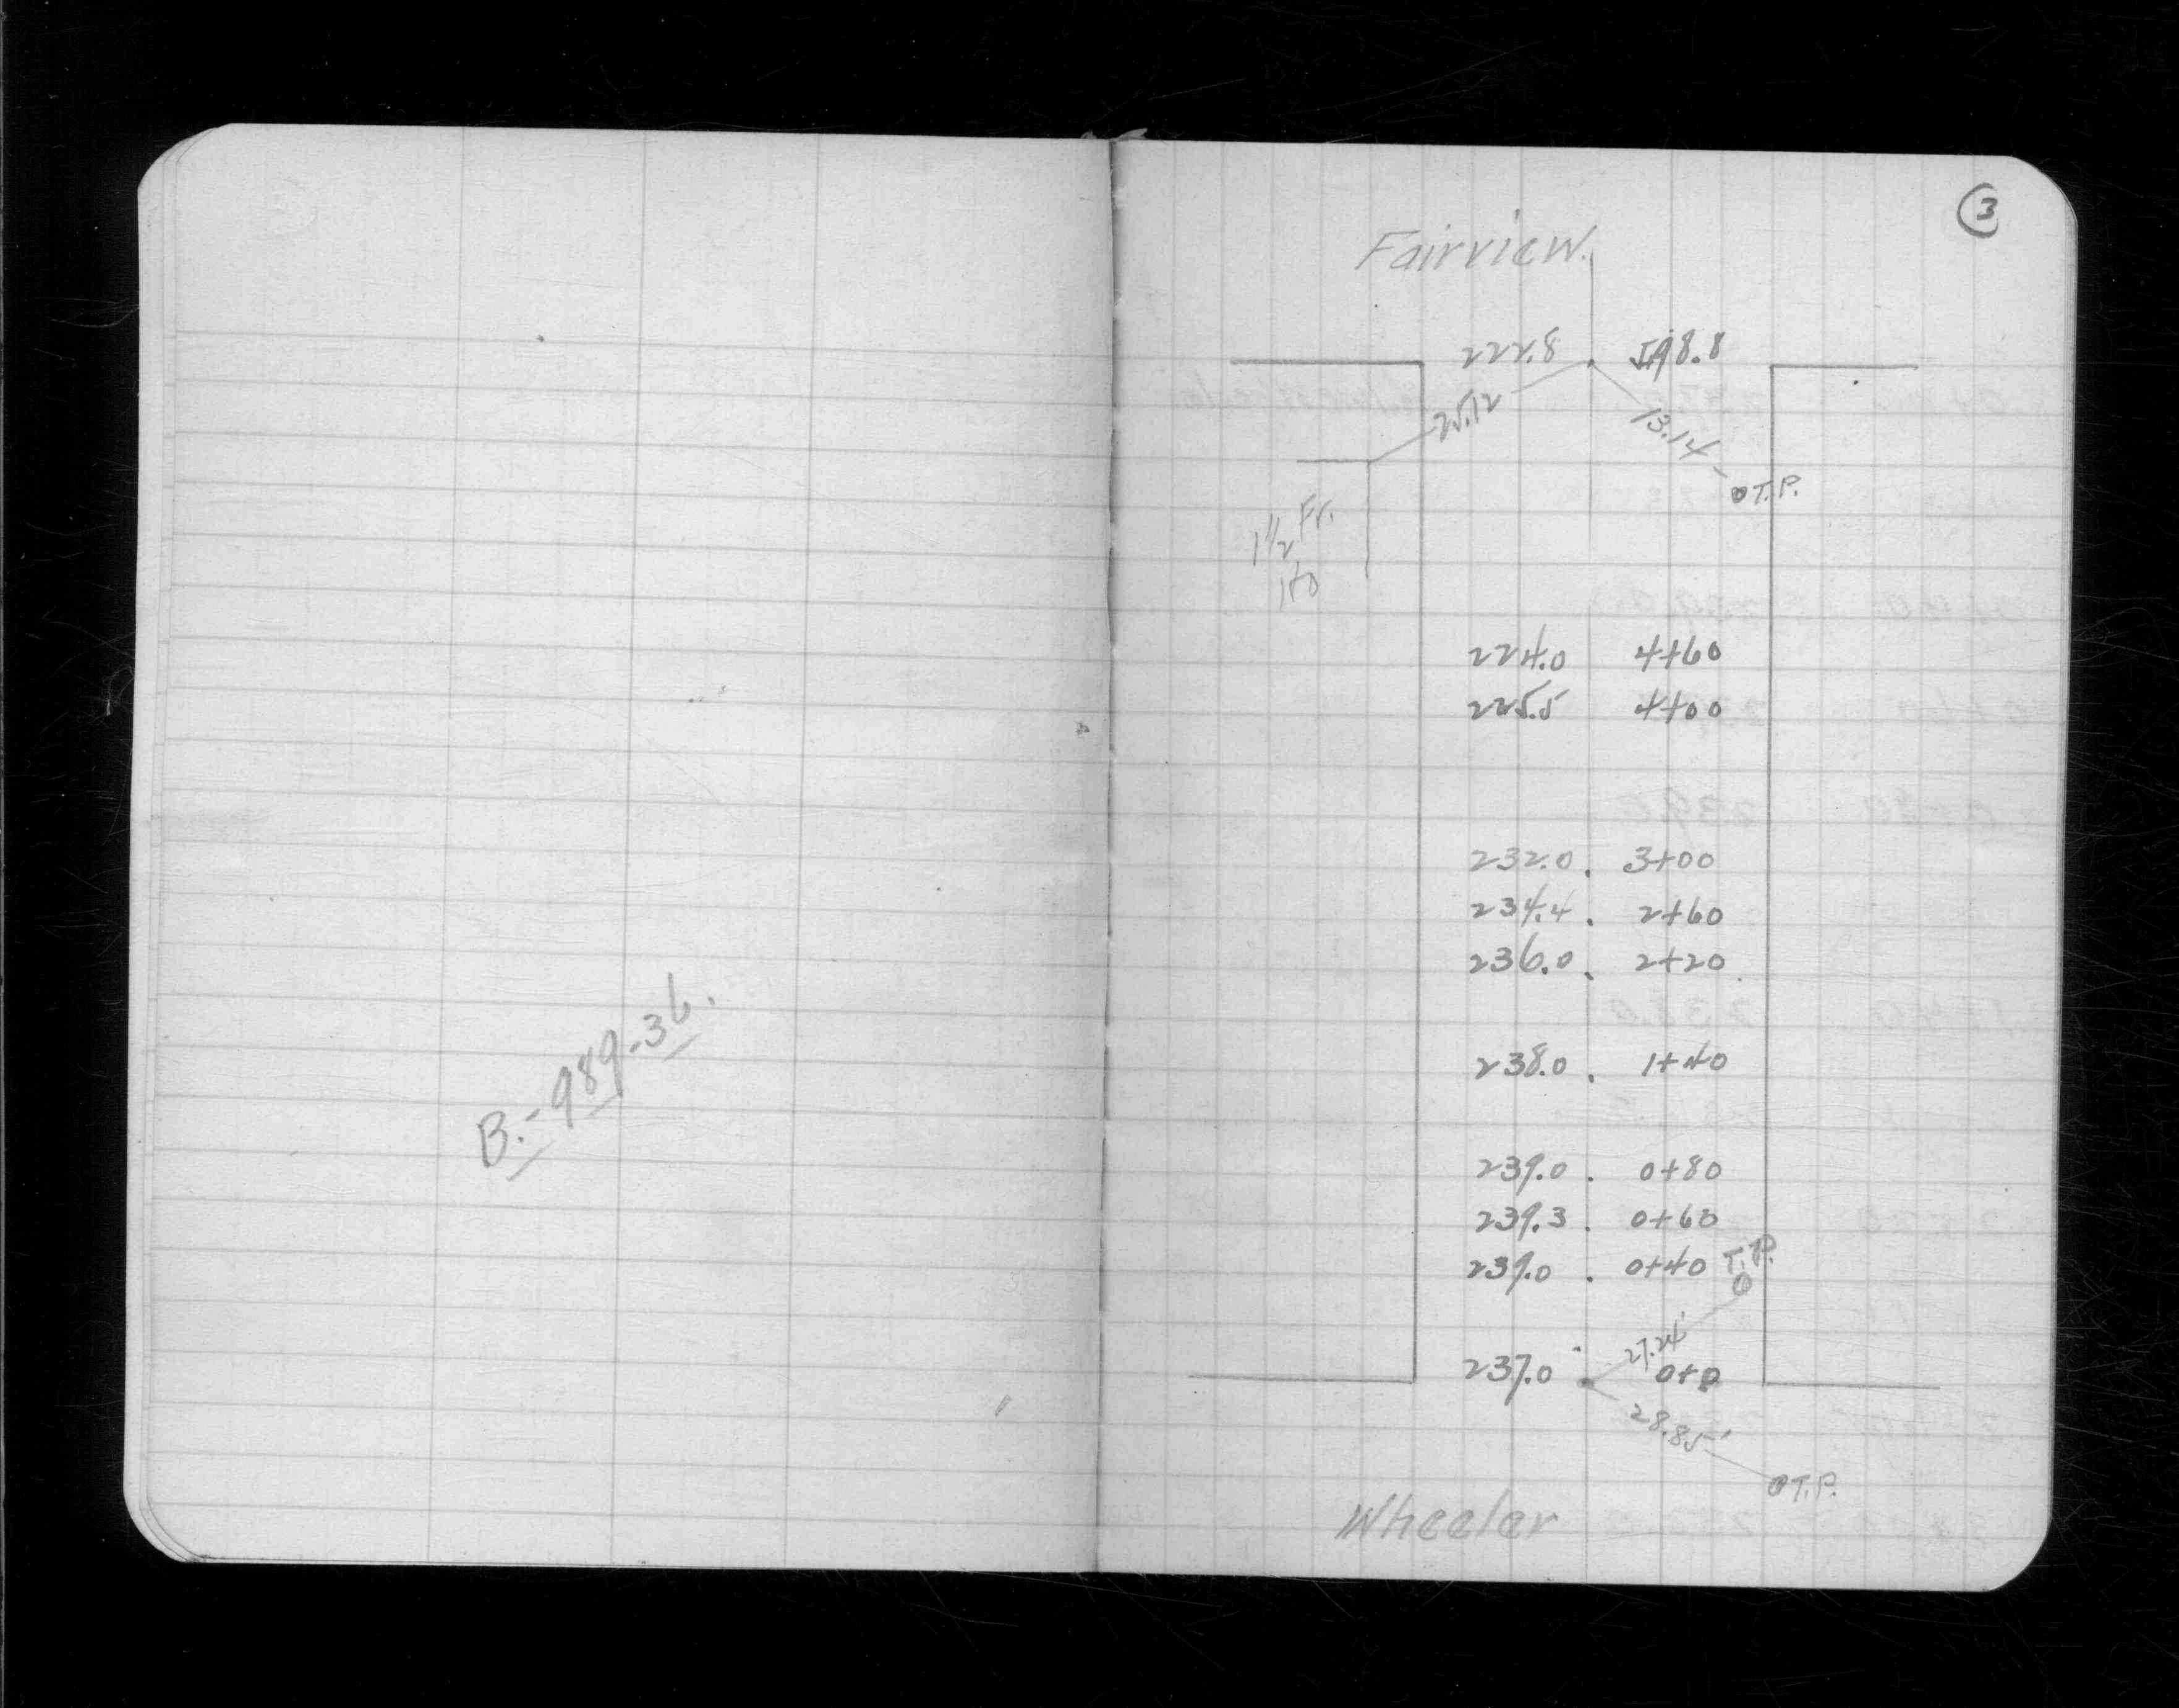 B.-989-36.
3
Fairview.
222.8 . 598.8
25.12
13.14
T.P.
1 1/2 Fr.
224.0 4+60
225.5 4+00
232.0 . 3+00
234.4 . 2+60
236.0 . 2+20
238.0 . 1+40
239.0 . 0+80
239.3 . 0+60
239.0 . 0+40 T.P.
27.24'
237.0 . 0+0
28.85'
T.P.
Wheeler